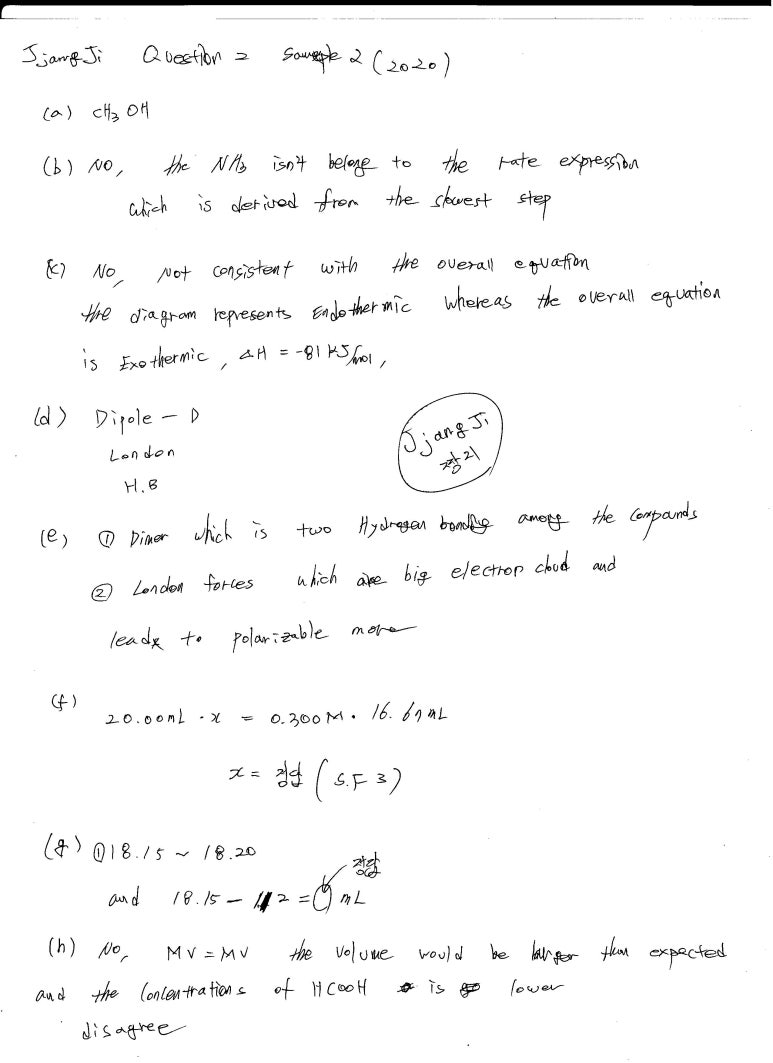 JjangJi Question 2 Sample 2 (2020)
(a) CH3 OH
(b) NO, the NH3 isn't belong to the rate expression
which is derived from the slowest step
(c) No, Not consistent with the overall equation
the diagram represents Endothermic whereas the overall equation
is Exothermic, ΔH = -81 kJ/mol,
(d) Dipole - D
London
H.B
JjangJi
짱지
(e) ① Dimer which is two Hydrogen bonding among the compounds
② London forces which are big electron cloud and
leads to polarizable more
(f)
20.00mL · x = 0.300M · 16.67mL
x = 정답 (S.F 3)
(g) ① 18.15 ~ 18.20
정답
and 18.15 - 1.12 = 0 mL
(h) No, MV = MV the volume would be larger than expected
and the concentrations of HCOOH is lower
disagree